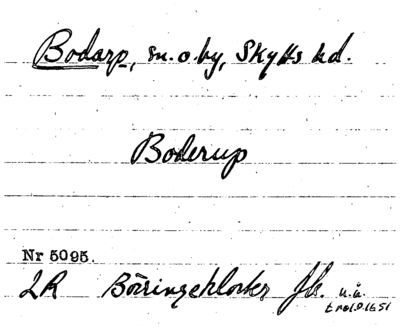 Bodarp, sn. o. by, Skytts hd.
Boderup
Nr 5095.
LR Börringekloster Jb. u.å.
t rel. o. 1651